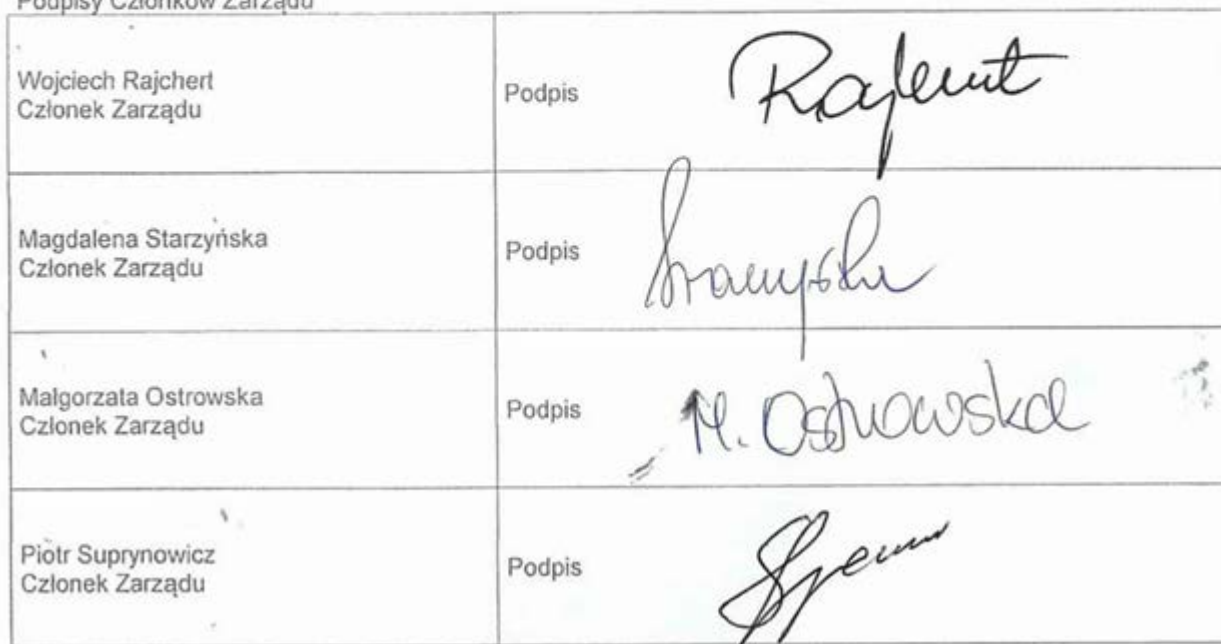 Podpisy Członków Zarządu
Wojciech Rajchert
Członek Zarządu
Podpis
Magdalena Starzyńska
Członek Zarządu
Podpis
Małgorzata Ostrowska
Członek Zarządu
Podpis
M. Ostrowska
Piotr Suprynowicz
Członek Zarządu
Podpis